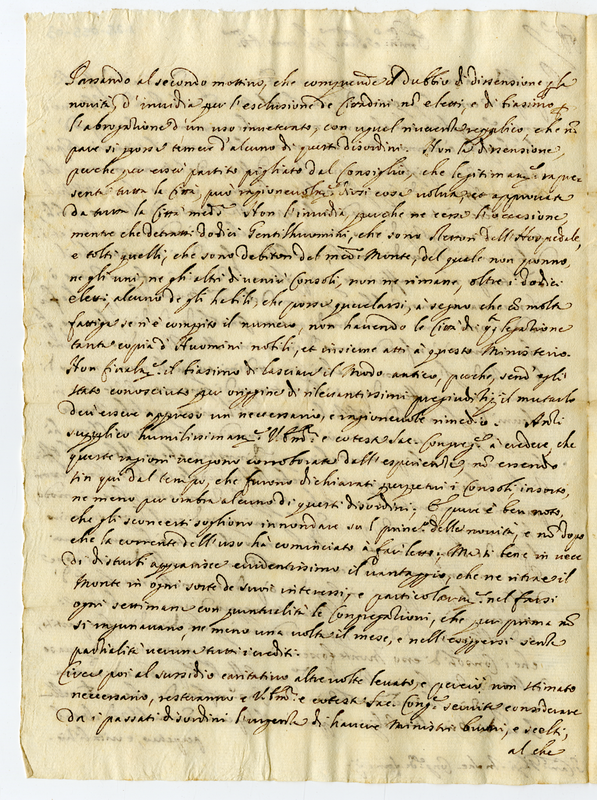 Passando al secondo mottivo, che comprende il dubbio di dissensione p la
novità, d'invidia per l'esclusione de Cittadini nō eletti, e di biasimo p
l'abrogatione d'un uso inveterato, con ugual riverenza replico, che nō
pare si possa temer d'alcuno di questi disordini. Non la dissensione,
perche per esser partito pigliato dal Consiglio, che legitimamᵗᵉ rapre
senta tutta la Città, può ragionevolmᵗᵉ dirsi cosa voluta et approvata
da tutta la Città medᵃ. Non l'invidia, perche ne cessa l'occasione,
mentre che detratti dodici Gentilhuomini, che sono Rettori dell'Hospedale,
e tolti quelli, che sono debitori del medᵒ Monte, del quale non ponno,
ne gli uni, ne gli altri divenir Consoli, non ne rimane, oltre i dodici
eletti, alcuno de gli habili, che possa querelarsi, a segno che cō molta
fattiga se n'è compito il numero, non havendo le Città di qᵃ legatione
tanta copia d'Huomini nobili, et insieme atti a questo Ministerio.
Non finalmᵗᵉ il biasimo di lasciare il Modo antico, perche, send'egli
stato conosciuto per origgine di rilevantissimi pregiuditij, il mutarlo
devi essere appreso un necessario, e ragionevole rimedio. Anzi
supplico humilissimamᵗᵉ V. Emᵃ e cotesta Sac. Congregᵉ a credere, che
queste ragioni vengono corroborate dall'esperienza, nō essendo
fin qui dal tempo, che furono dichiarati perpetui i Consoli, insorto,
ne meno per ombra alcuno di questi disordini; E pure è ben noto,
che gli sconcerti sogliono innondare su'l princᵒ delle novità, e nō dopo
che la corrente dell'uso hà cominciato a farsi letto; Mà si bene in vece
di disturbi apparisce evidentissimo il vantaggio, che ne ritrae il
Monte in ogni sorte de suoi interessi, e particolarmᵗᵉ nel farsi
ogni settimana con puntualità le Congregationi, che per prima nō
si ragunavano, ne meno una volta il mese, e nell'essigersi senza
partialità veruna tutti i crediti.
Circa poi al sussidio caritativo altre volte levato, e perciò non stimato
necessario, resteranno e V. Emᵃ e cotesta Sac. Congᵉ servite considerare
da i passati disordini l'urgenza di havere Ministri buoni, e scelti,
al che